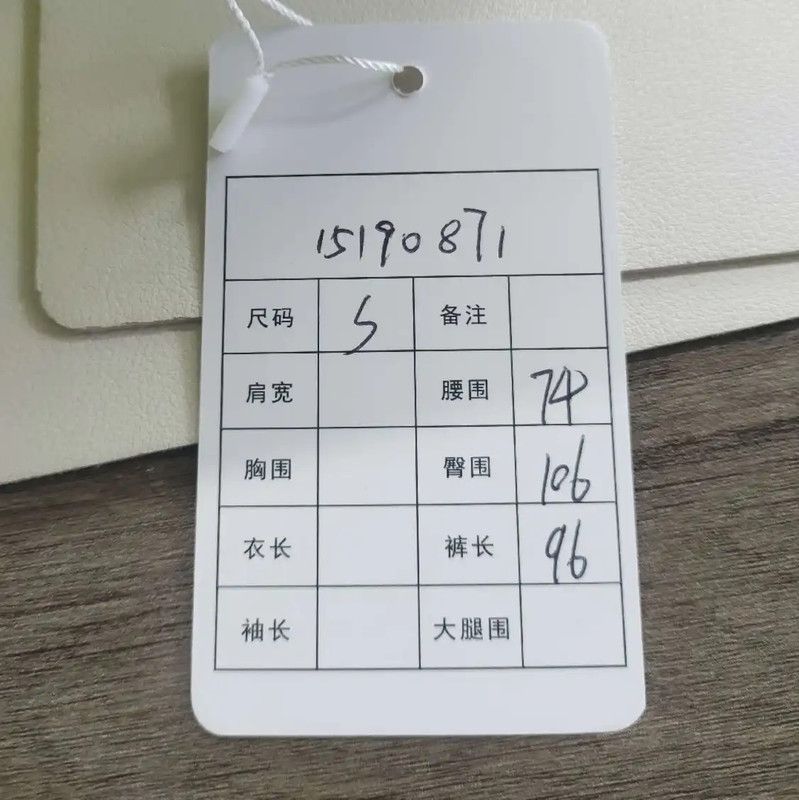 15190871
尺码 S 备注
肩宽 腰围 74
胸围 臀围 106
衣长 裤长 96
袖长 大腿围